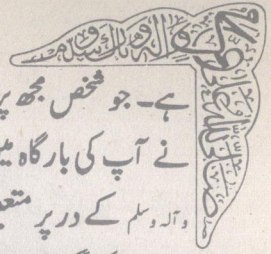 صلی اللہ علیہ وآلہ وبارک وسلم
ہے۔ جو شخص مجھ پر
نے آپ کی بارگاہ میں
وآلہ وسلم کے در پر متعین